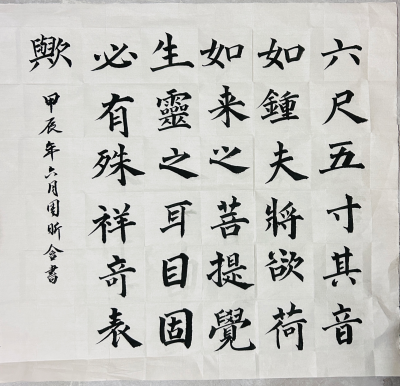 六尺五寸其音
如鍾夫將欲荷
如来之菩提覺
生靈之耳目固
必有殊祥奇表
歟
甲辰年六月周昕含書